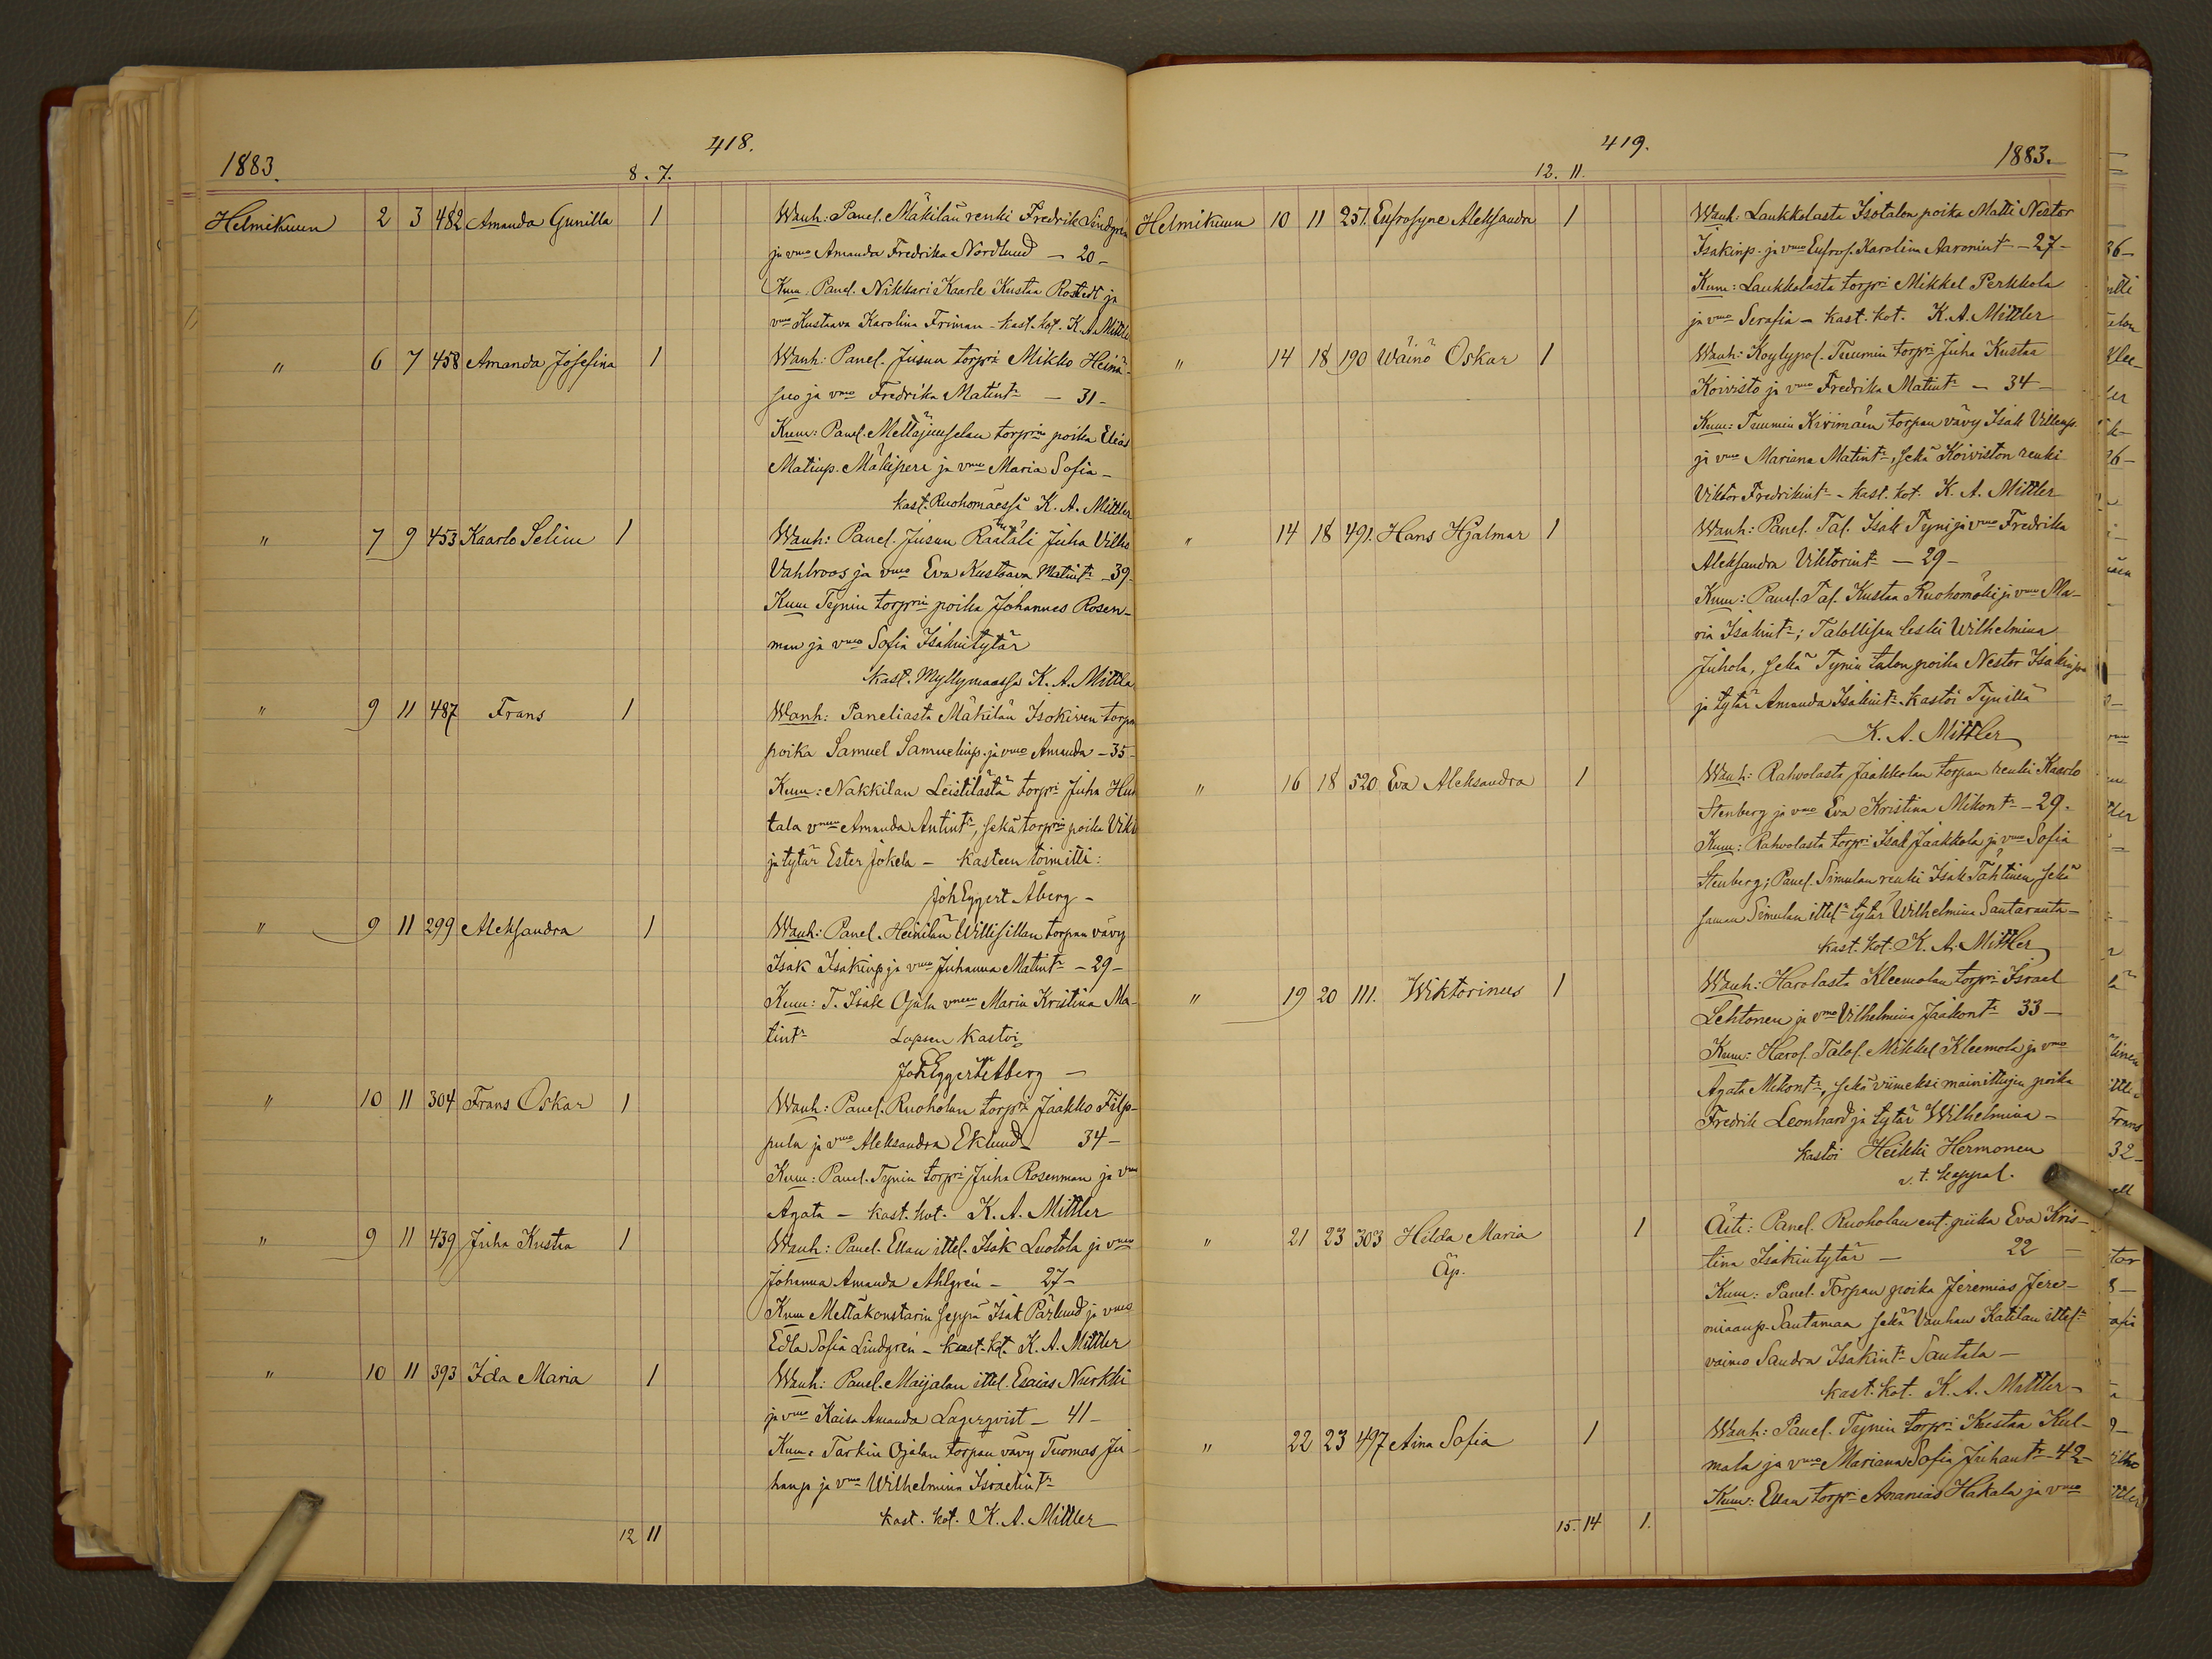 418.
1883.
8. 7.
Helmikuun 2 3 482 Amanda Gunilla 1 Wanh: Panel. Mäkilän renki Fredrik Lindgrén
ja vmo Amanda Fredrika Nordlund — 20 —
Kum. Panel. Nikkari Kaarle Kustaa Rostedt ja
vmo Kustaava Karolina Friman - kast. kot. K. A. Mittler
" 6 7 458 Amanda Josefina 1 Wanh: Panel. Jusun torpri Mikko Heinä-
suo ja vmo Fredrika Matintr — 31 —
Kum: Panel. Mettäjuuselan torprin poika Elias
Matinp. Mäkiperi ja vmo Maria Sofia —
kast. Ruohomäessä K. A. Mittler
" 7 9 453 Kaarlo Selim 1 Wanh: Panel. Jusun Räätäli Juha Vilho
Vahlroos ja vmo Eva Kustaava Matintr — 39 —
Kum Tynin torprin poika Johannes Rosen-
man ja vmo Sofia Isakintytär
kast. Myllymaassa K. A. Mittler
" 9 11 487 Frans 1 Wanh: Paneliasta Mäkilän Isokiven torpan
poika Samuel Samuelinp. ja vmo Amanda — 35 —
Kum: Nakkilan Leistilästä torpri Juha
tala vmo Amanda Antintr, sekä torprin poika
ja tytär Ester Jokela — kasteen toimitti:
Joh Eggert Åberg —
" 9 11 299 Aleksandra 1 Wanh: Panel. Heinilän Willisillan torpan vävy
Isak Isakinp. ja vmo Juhanna Matintr — 29 —
Kum: T. Isak Ojala vmo Maria Kristina Ma-
tintr Lapsen kastoi
Joh Eggert Åberg —
" 10 11 304 Frans Oskar 1 Wanh: Panel. Ruoholan torpri Jaakko Filp-
pula ja vmo Aleksandra Eklund — 34 —
Kum: Panel. Tynin torpri Juha Rosenman ja vmo
Agata — kast. kot. K. A. Mittler
" 9 11 439 Juha Kustaa 1 Wanh: Panel. Ellan ittel. Isak Luotola ja vmo
Johanna Amanda Ahlgrén — 27 —
Kum Mettäkonstarin seppä Isak Pärlund ja vmo
Edla Sofia Lindgrén — kast. kot. K. A. Mittler
" 10 11 393 Ida Maria 1 Wanh: Panel. Maijalan ittel. Esaias Nurkki
ja vmo Kaisa Amanda Lagerqvist — 41 —
Kum: Tarkin Ojalan torpan vävy Tuomas Ju-
hanp. ja vmo Wilhelmina Israelintr
kast. kot. K. A. Mittler
12 11
419.
1883.
12. 11.
Helmikuun 10 11 251. Eufrosyne Aleksandra 1 Wanh: Laukkolasta Isotalon poika Matti Nestor
Isakinp. ja vmo Eufros. Karolina Aaronintr — 27 —
Kum: Laukkolasta torpri Mikkel Perkkola
ja vmo Serafia — kast. kot. K. A. Mittler
" 14 18 190 Wäinö Oskar 1 Wanh: Köylypol. Tuumin torpri Juha Kustaa
Koivisto ja vmo Fredrika Matintr — 34 —
Kum: Tuumin Kivimäen torpan vävy Isak Villenp.
ja vmo Mariana Matintr, sekä Koiviston renki
Viktor Fredrikintr — kast. kot. K. A. Mittler
" 14 18 491. Hans Hjalmar 1 Wanh: Panel. Tal. Isak Tyni ja vmo Fredrika
Aleksandra Viktorintr — 29 —
Kum: Panel. Tal. Kustaa Ruohomäki ja vmo Ma-
ria Isakintr; Talollisen leski Wilhelmina
Juhola, sekä Tynin talon poika Nestor Isakinpoi
ja tytär Amanda Isakintr. kastoi Tynillä
K. A. Mittler
" 16 18 520 Eva Aleksandra 1 Wanh: Rahvolasta Jaakkolan torpan renki Kaarlo
Stenberg ja vmo Eva Kristina Mikontr — 29.
Kum: Rahvolasta torpri Isak Jaakkola ja vmo Sofia
Stenberg; Panel. Simulan renki Isak Tähtinen, sekä
saman Simulan ittel. tytär Wilhelmina Santaranta —
kast. kot. K. A. Mittler
" 19 20 111. Wiktorinus 1 Wanh: Harolasta Kleemolan torpri Israel
Lehtonen ja vmo Vilhelmina Jaakontr 33 —
Kum: Harol. Talol. Mikkel Kleemola ja vmo
Agata Mikontr, sekä viimeksi mainittujen poika
Fredrik Leonhard ja tytär Wilhelmina —
kastoi Heikki Hermonen
v. t. kappal.
" 21 23 303 Hilda Maria 1 Äiti: Panel. Ruoholan ent. piika Eva Kris-
Äp. tina Isakintytär — 22 —
Kum: Panel. Torpan poika Jeremias Jere-
miaanp. Santamaa sekä Vanhan Katilan ittel.
vaimo Sandra Isakintr Santala —
kast. kot. K. A. Mittler —
" 22 23 497 Aina Sofia 1 Wanh: Panel. Tynin torpri Kustaa Kul-
mala ja vmo Mariana Sofia Juhantr — 42 —
Kum: Ellan torpri Ananias Hakala ja vmo
15. 14 1.